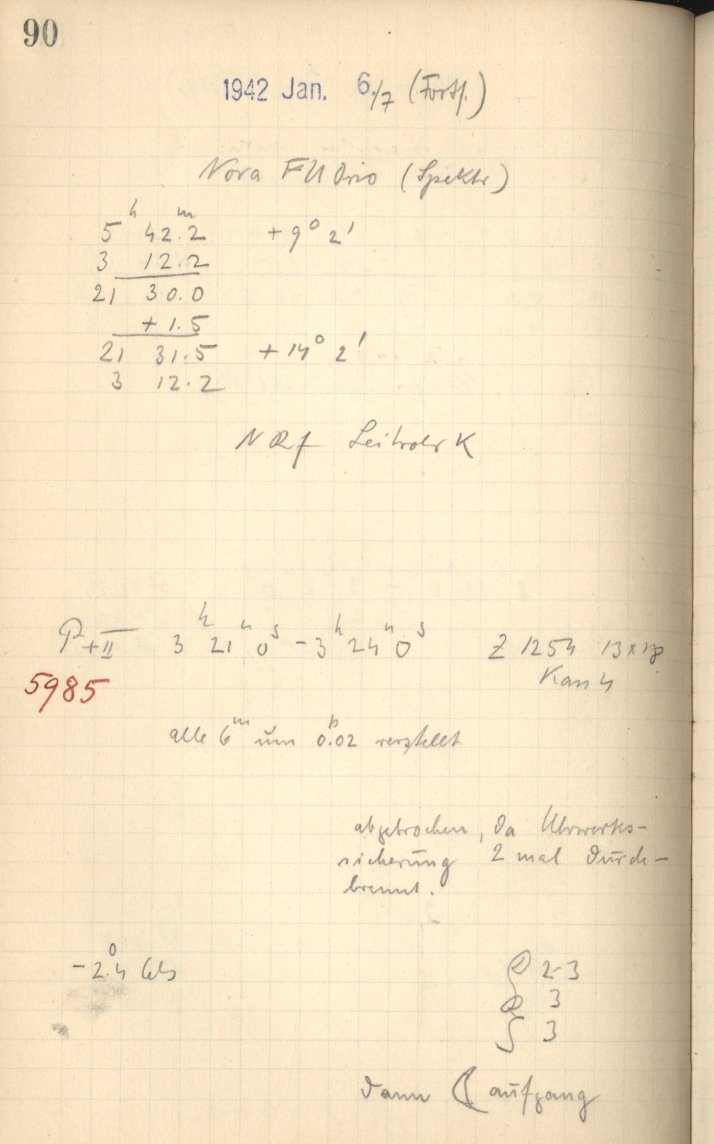 90
1942 Jan. 6./7 (Fortf.)
Nova FU Orio (Spektr)
5h 42m.2 +9° 2'
3 12.2
21 30.0
+ 1.5
21 31.5 +14° 2'
3 12.2
Leitrohr K
P+II 3h 21m 0s - 3h 24m 0s Z 1254 13x18
5985 Kass 4
alle 6m um 0.02 verstellt
abgebrochen, da Uhrwerks-
sicherung 2 mal durch-
brennt.
-2°.4 Cels 2-3
3
3
dann ☾ aufgang